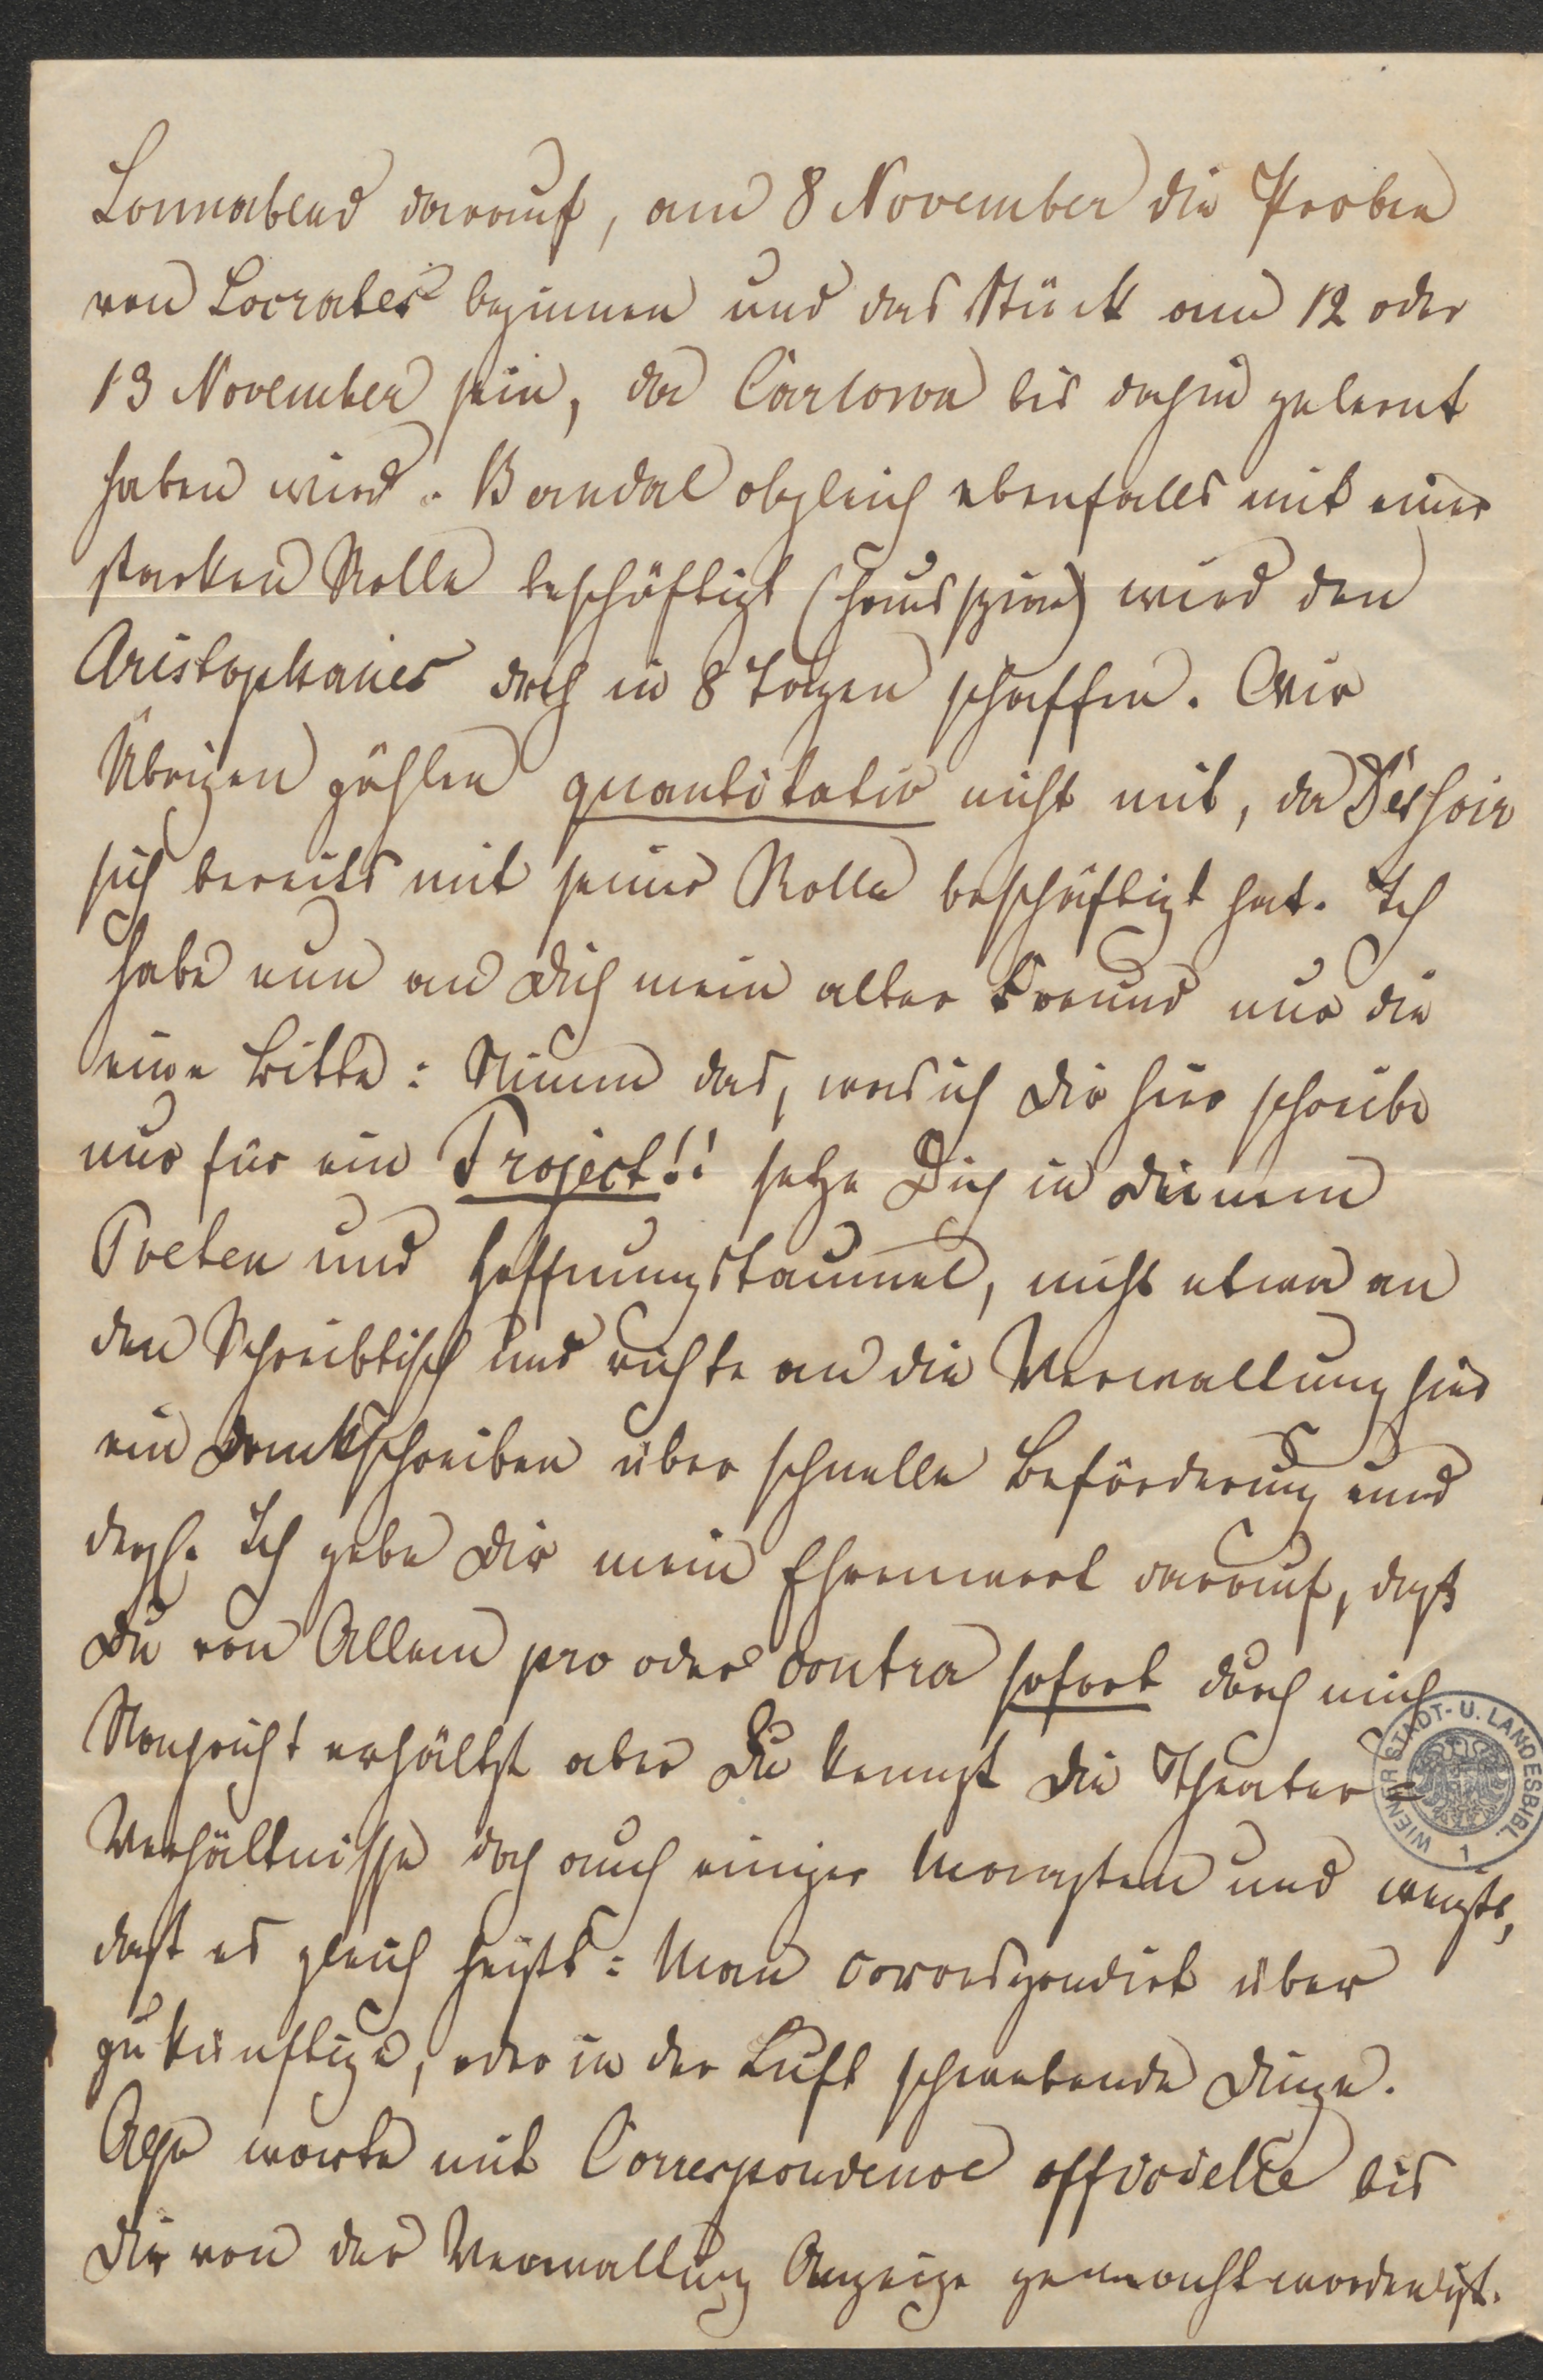 Sonnabend darauf, am 8 November die Proben
von Socrates beginnen und das Stück am 12 oder
13 November sein, da Carlowa bis dahin gelernt
haben wird. Baudal obgleich ebenfalls mit einer
starken Rolle beschäftigt wird den
Aristophanes doch in 8 Tagen schaffen. Wir
Übrigen zählen quantitativ nicht mit, da Dessoir
sich bereits mit seiner Rolle beschäftigt hat. Ich
habe nun an Dich mein alter Freund nur die
eine Bitte: Nimm das, was ich Dir hier schreibe
nur für ein Project!! setze Dich in Deinem
Poeten und Hoffnungstaumel, nicht etwa an
den Schreibtisch und richte an die Verwaltung hier
ein Dankschreiben über schnelle Beförderung und
dergl. Ich gebe Dir mein Ehrenwort darauf, daß
Du von Allem pro oder contra sofort durch mich
Nachricht erhältst aber Du kennst die Theater=
Verhältnisse doch auch einiger Maaßen und weißt,
daß es gleich heißt: Man correspondirt über
zukünftige, oder in der Luft schwebende Dinge.
Also warte mit Correspondence officielle bis
Dir von der Verwaltung Anzeige gemacht worden ist.
WIENER STADT- U. LANDESBIBL.